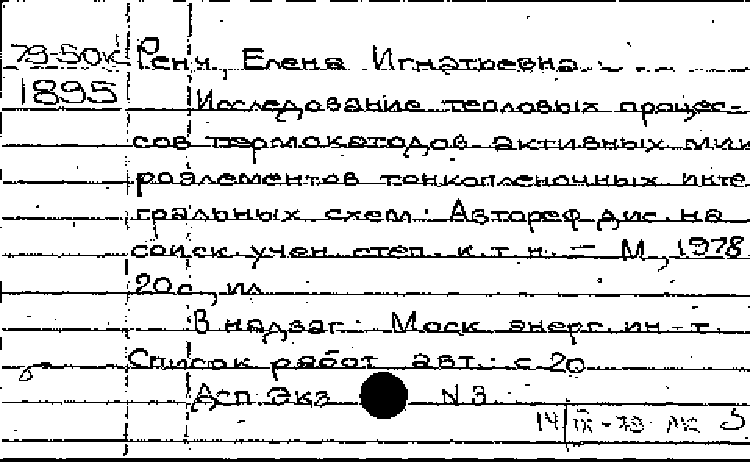 79-50к Ренч, Елена Игнатьевна.
1895 Исследование тепловых процес-
сов термокатодов активных мик
роэлементов тонкопленочных инте
гральных схем: Автореф дис. на
соиск. учен. степ. к.т.н. – М, 1978
20с, ил
В надзаг: Моск энерг. ин-т.
Список работ авт.: с 20
Асп. Экз N 3
14/IX-79